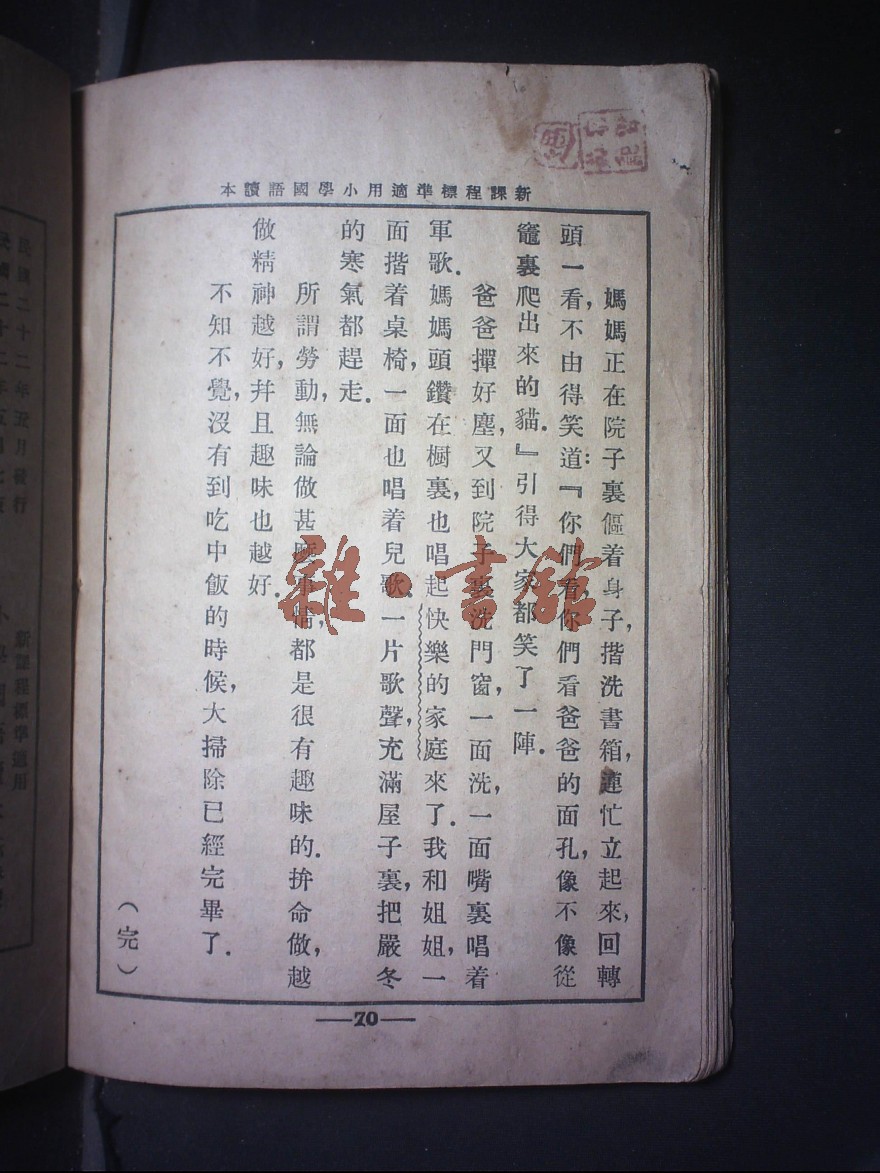 新課程標準適用小學國語讀本
媽媽正在院子裏傴着身子，揩洗書箱，連忙立起來，回轉
頭一看，不由得笑道：『你們看，你們看爸爸的面孔，像不像從
竈裏爬出來的貓．』引得大家都笑了一陣．
爸爸撣好塵，又到院子裏洗門窗，一面洗，一面嘴裏唱着
軍歌．媽媽頭鑽在櫥裏，也唱起快樂的家庭來了．我和姐姐，一
面揩着桌椅，一面也唱着兒歌．一片歌聲，充滿屋子裏，把嚴冬
的寒氣都趕走．
所謂勞動，無論做甚麼事情，都是很有趣味的．拚命做，越
做精神越好，幷且趣味也越好．
不知不覺，沒有到吃中飯的時候，大掃除已經完畢了．
（完）
—70—
雜·書館
新課程標準適用
民國二十二年五月發行